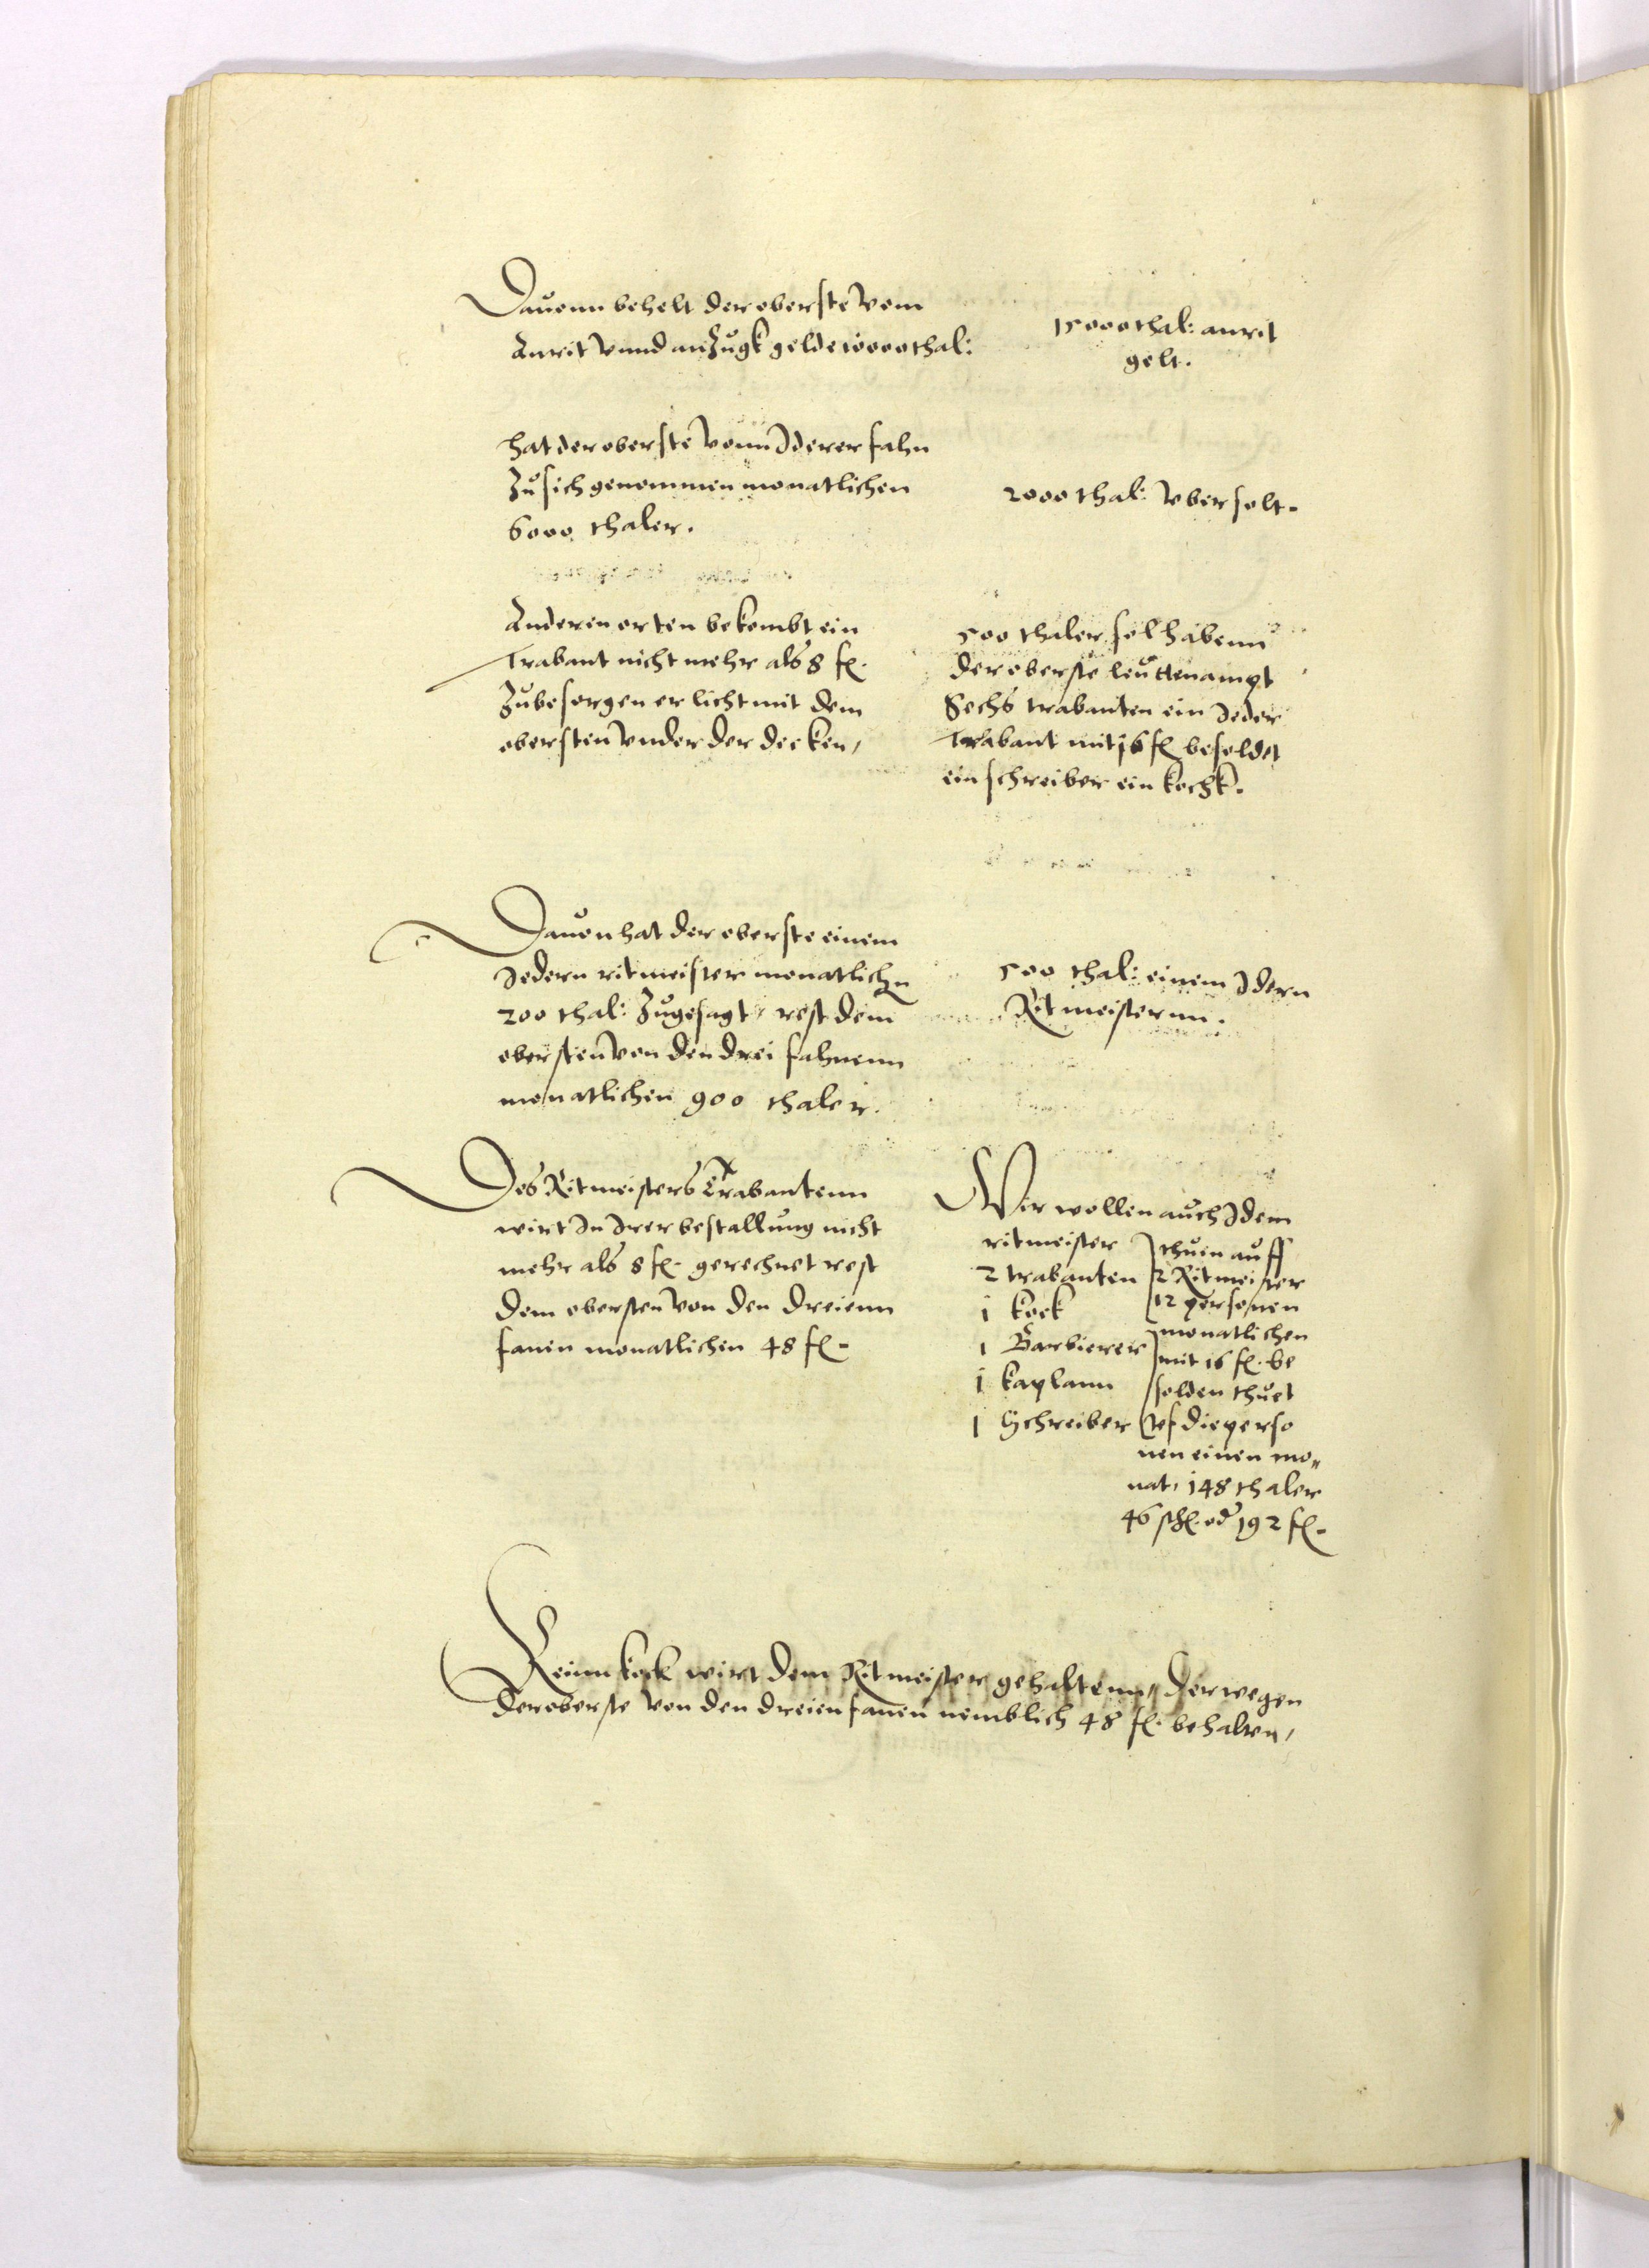 Dauonn behelt der oberste vom
Anrit vnnd anzugk gelde 10000 thal:
15000 thal: anrit
gelt.
hat der oberste vonn Iderer fahn
zu sich genommen monatlichen
6000 thaler.
2000 thal: vber solt.
Anderen orten bekombt ein
Trabant nicht mehr als 8 fl.
zubesorgen er licht mit dem
obersten vnder der decken,
500 thaler sol habenn
der oberste leuttenampt
Sechs trabanten ein Jeder
Trabant mit 16 fl besoldet
ein schreiber ein kochk.
Dauon hat der oberste einem
Jedern ritmeister monatlichen
200 thal: zugesagt, rest dem
obersten von den drei fahnenn
monatlichen 900 thaler.
500 thal: einem Idern
Ritmeisternn.
Des Ritmeisters Trabantenn
wirt In Irer bestallung nicht
mehr als 8 fl. gerechnet rest
dem obersten von den dreienn
fanen monatlichen 48 fl.
Wir wollen auch Idem
ritmeister
2 trabanten
1 kock
1 Barbierer
1 kaplann
1 Schreiber
thuen auff
2 Ritmeister
12 personen
monatlichen
mit 16 fl. be
solden thuet
vf die perso
nen einen mo„
nat, 148 thaler
46 schl. od 192 fl.
Keinn kock wirt dem Ritmeister gehaltenn, derwegen
der oberste von den dreien fanen nemblich 48 fl. behalten,